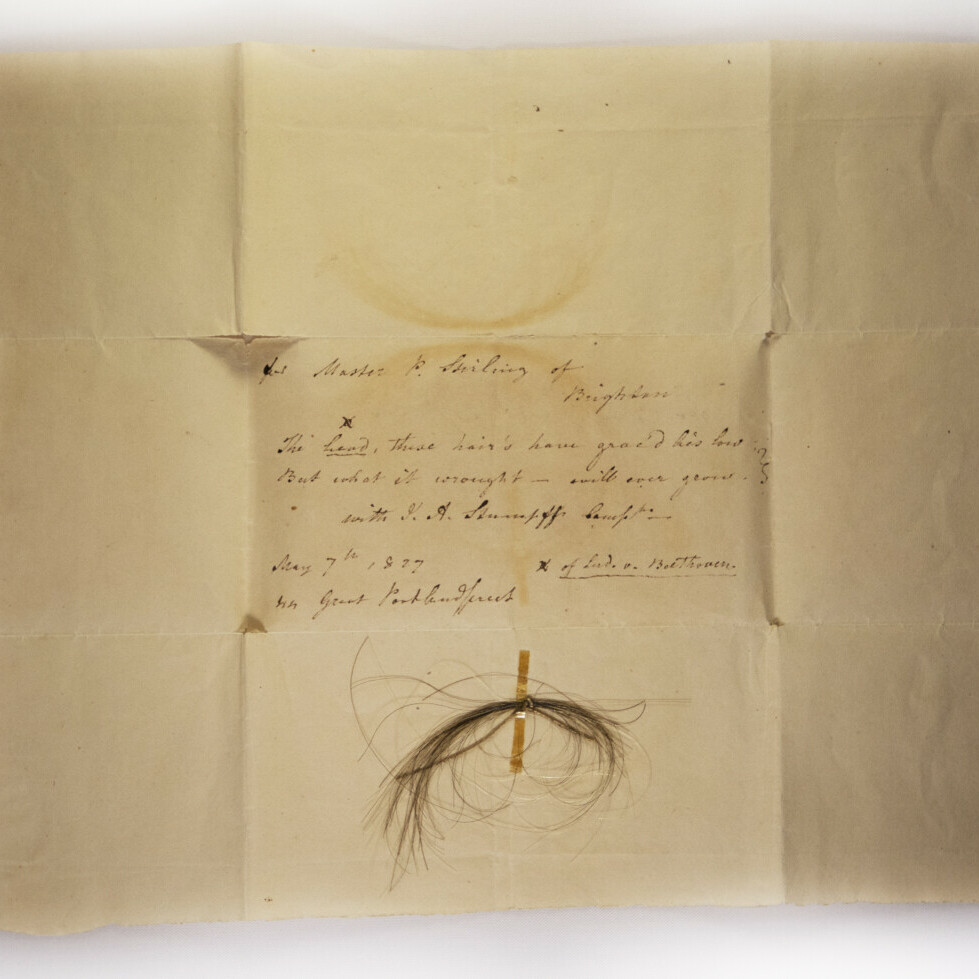 for Master P. Stirling of
Brighton
x
The head, these hair's have grac'd lies low
But what it wrought — will ever grow.
with J. A. Stumpff's
May 7th, 1827
x of Lud. v. Beethoven.
Great Portlandstreet